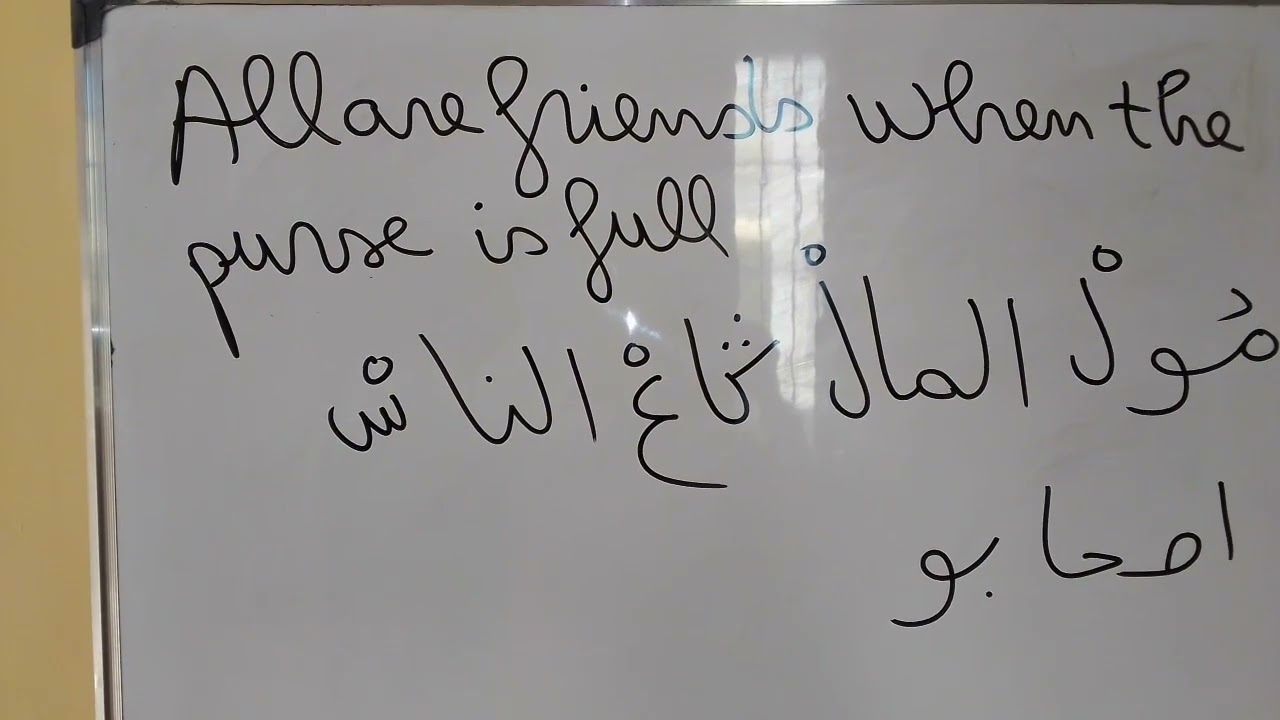 All are friends when the
purse is full
مُولْ المالْ ڨاعْ الناسْ
اصحابو